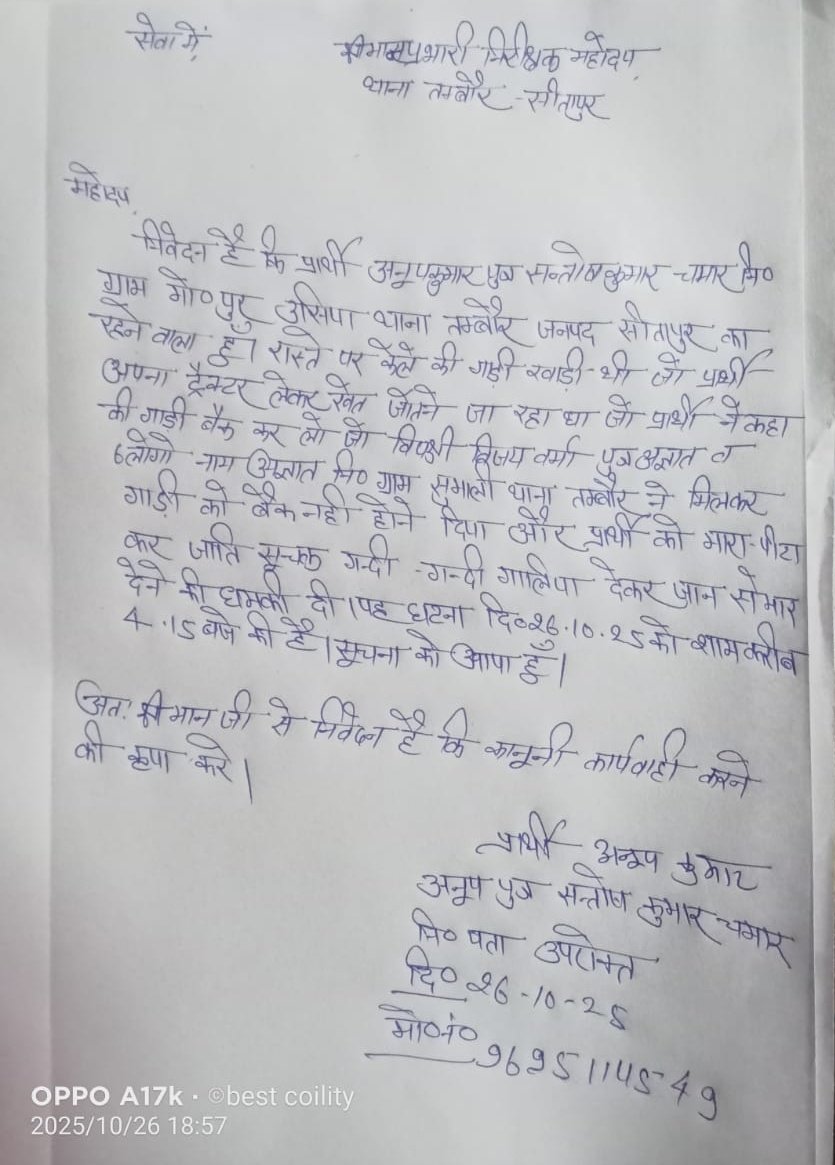 सेवा में,
श्रीमान प्रभारी निरीक्षक महोदय,
थाना तम्बौर - सीतापुर
महोदय,
निवेदन है कि प्रार्थी अनूपकुमार पुत्र सन्तोषकुमार चमार नि०
ग्राम मो० पुर उसिया थाना तम्बौर जनपद सीतापुर का
रहने वाला हूँ। रास्ते पर केले की गाड़ी खाड़ी थी जो प्रार्थी
अपना ट्रैक्टर लेकर खेत जोतने जा रहा था जो प्रार्थी ने कहा
की गाडी बैक कर लो जो विपक्षी विजय वर्मा पुत्र अज्ञात व
6 लोगो नाम अज्ञात नि० ग्राम थाना तम्बौर ने मिलकर
गाड़ी को बैक नही होने दिया और प्रार्थी को मारा-पीटा
कर जाति सूचक गन्दी - गन्दी गालिया देकर जान से मार
देने की धमकी दी। यह घटना दि० 26.10.25 को शाम करीब
4.15 बजे की है। सूचना को आया हूँ।
अत: श्रीमान जी से निवेदन है कि कानूनी कार्यवाही करने
की कृपा करे।
प्रार्थी अनूप कुमार
अनूप पुत्र सन्तोष कुमार चमार
नि० पता उपरोक्त
दि० 26-10-25
मो०नं० 9695114549
OPPO A17k · ©best coility
2025/10/26 18:57